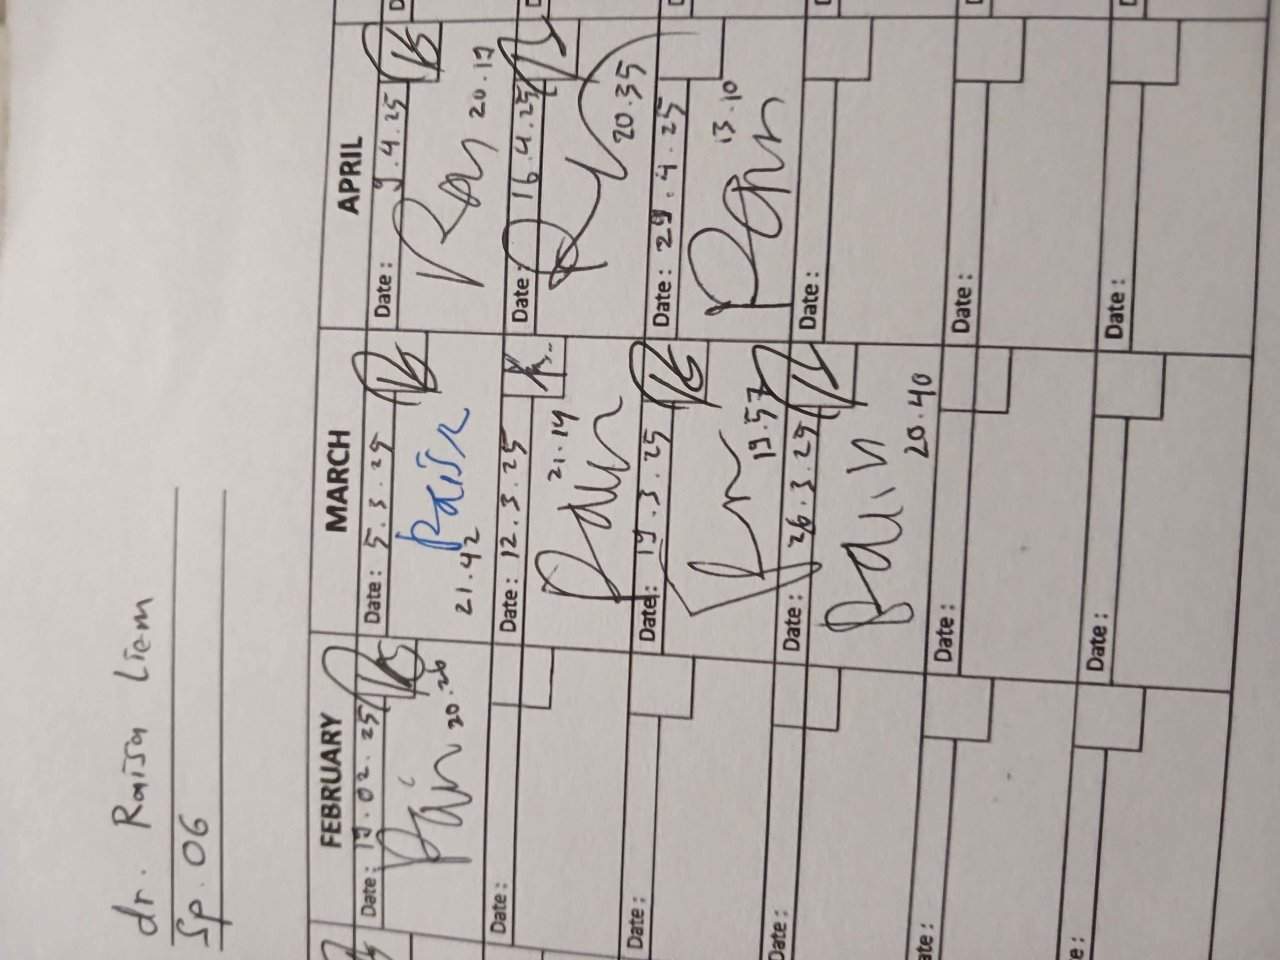 dr. Raisa Liem
Sp. OG
FEBRUARY
Date: 19.02.25
20.26
Date:
Date:
Date:
Date:
MARCH
Date: 5.3.25
Raisa
21.42
Date: 12.3.25
21.14
Date: 19.3.25
19.57
Date: 26.3.25
20.40
Date:
Date:
APRIL
Date: 9.4.25
20.17
Date: 16.4.25
20.35
Date: 29.4.25
13.10
Date:
Date:
Date: